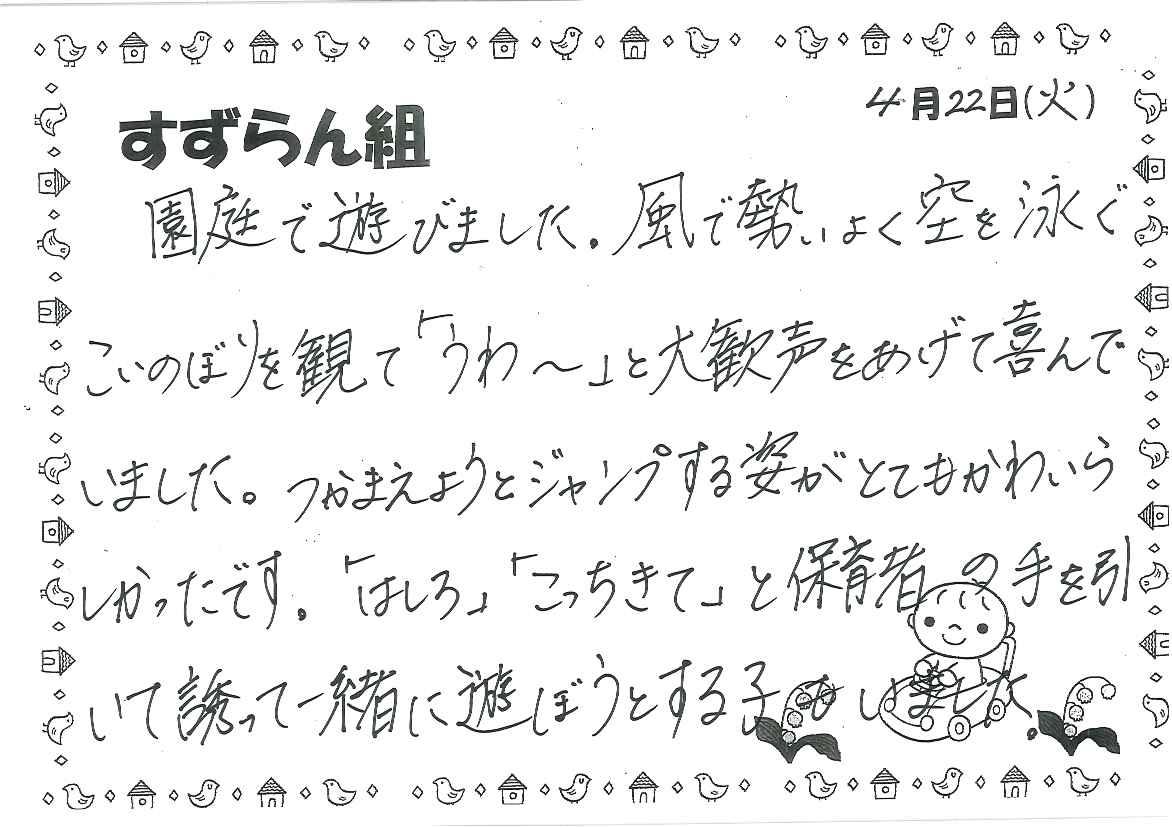 4月22日(火)
すずらん組
園庭で遊びました。風で勢いよく空を泳ぐ
こいのぼりを観て「うわ～」と大歓声をあげて喜んで
いました。つかまえようとジャンプする姿がとてもかわいら
しかったです。「はしろ」「こっちきて」と保育者の手を引
いて誘って一緒に遊ぼうとする子もいました。